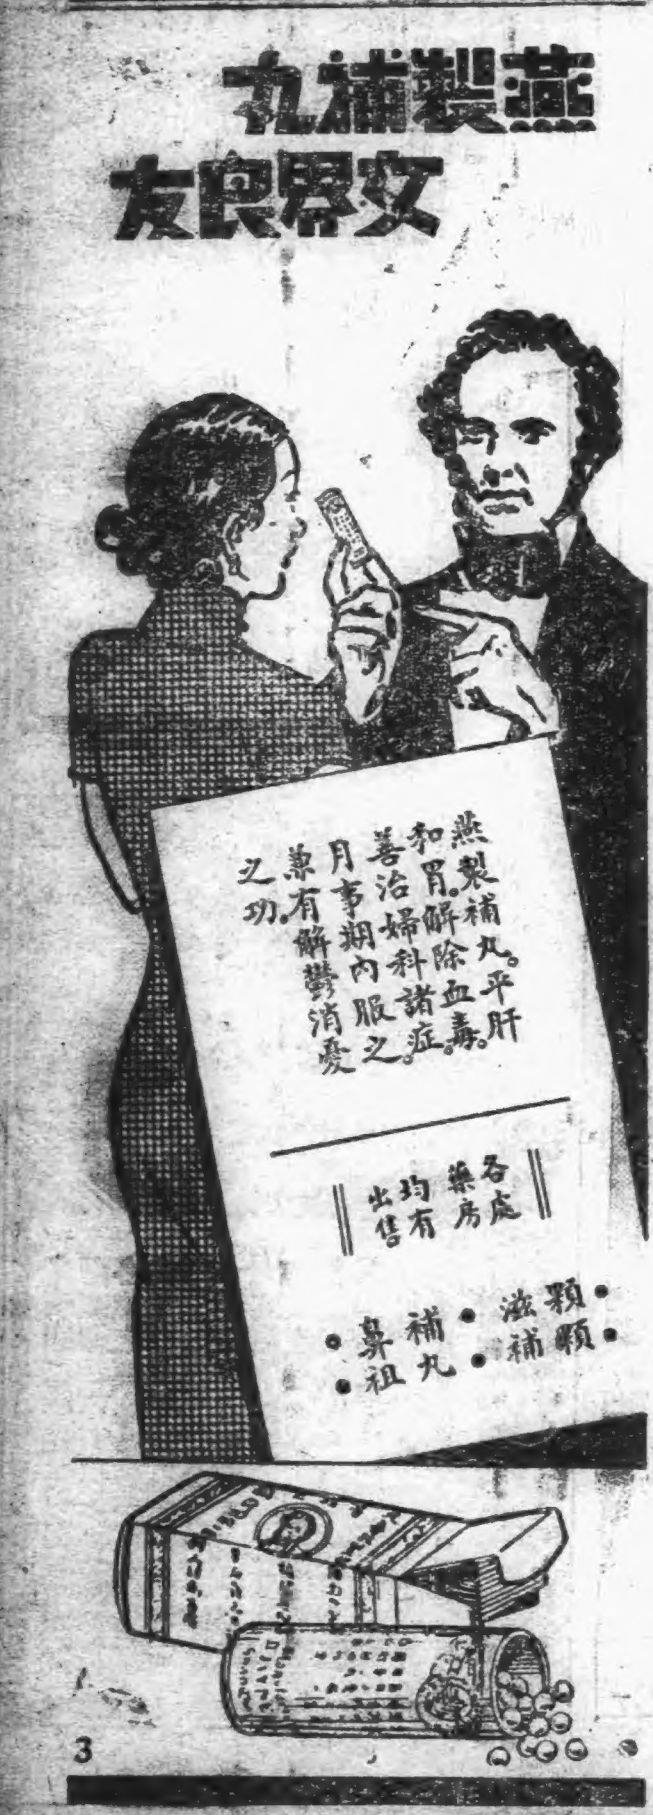 燕製補丸
女界良友
燕製補丸。平肝
和胃。解除血毒。
善治婦科諸症。
月事期內服之
兼有解鬱消憂
之功。
各處
藥房
均有
出售
顆顆
滋補
補丸
鼻祖
3